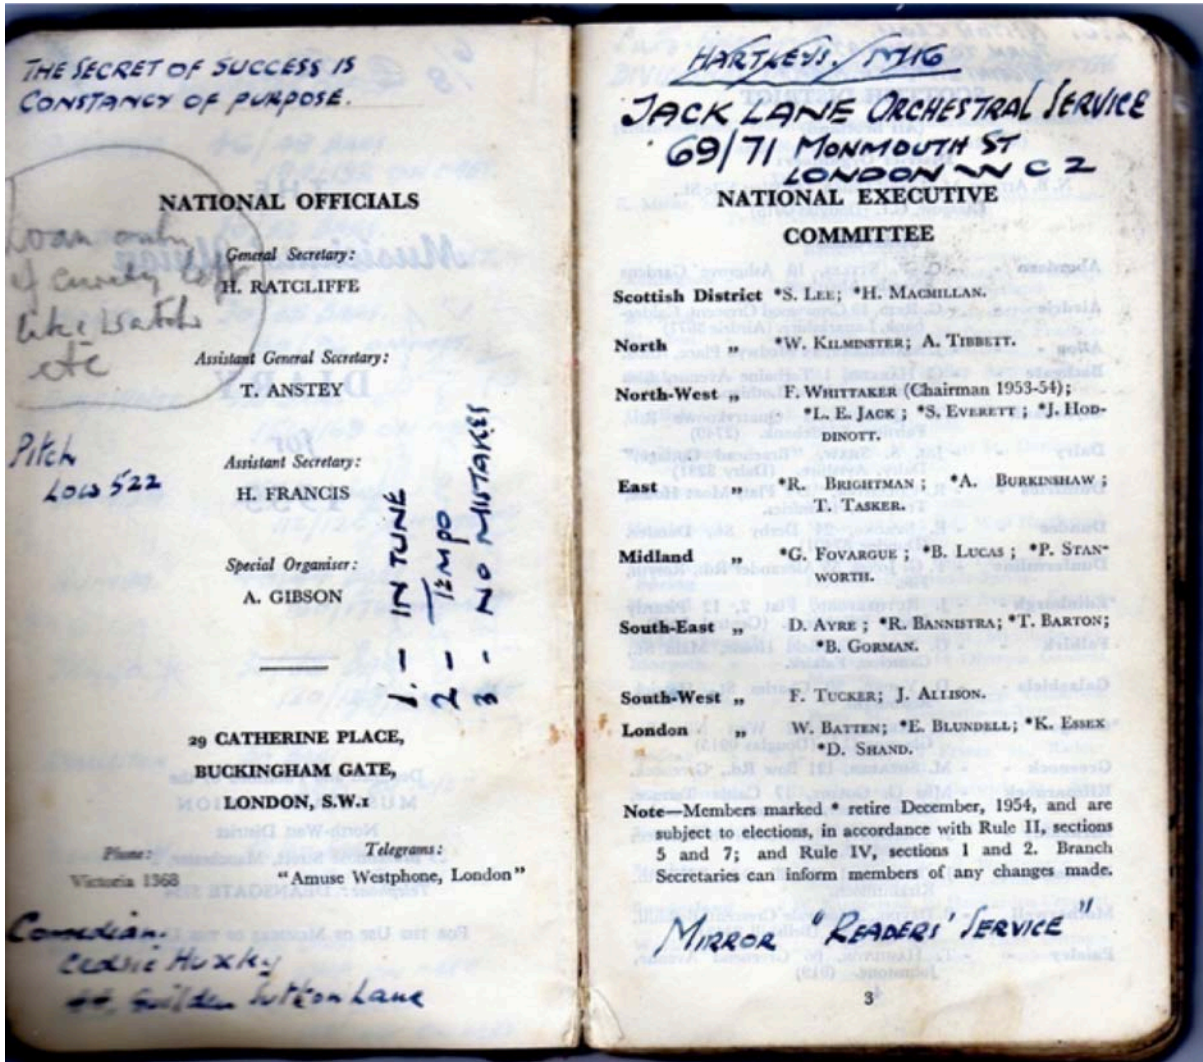 THE SECRET OF SUCCESS IS
CONSTANCY OF PURPOSE.
NATIONAL OFFICIALS
Loan only
if
like watch
etc
General Secretary:
H. RATCLIFFE
Assistant General Secretary:
T. ANSTEY
Pitch
Low 522
Assistant Secretary:
H. FRANCIS
Special Organiser:
A. GIBSON
1. – IN TUNE
2 – TEMPO
3 – NO MISTAKES
29 CATHERINE PLACE,
BUCKINGHAM GATE,
LONDON, S.W.1
Phone: Telegrams:
Victoria 1368 "Amuse Westphone, London"
Comedian.
Cedric Huxley
Guilden Sutton Lane
HARTLEYS.
JACK LANE ORCHESTRAL SERVICE
69/71 MONMOUTH ST
LONDON W C 2
NATIONAL EXECUTIVE
COMMITTEE
Scottish District *S. LEE; *H. MACMILLAN.
North „ *W. KILMINSTER; A. TIBBETT.
North-West „ F. WHITTAKER (Chairman 1953-54);
*L. E. JACK; *S. EVERETT; *J. HOD-
DINOTT.
East „ *R. BRIGHTMAN; *A. BURKINSHAW;
T. TASKER.
Midland „ *G. FOVARGUE; *B. LUCAS; *P. STAN-
WORTH.
South-East „ D. AYRE; *R. BANNISTRA; *T. BARTON;
*B. GORMAN.
South-West „ F. TUCKER; J. ALLISON.
London „ W. BATTEN; *E. BLUNDELL; *K. ESSEX
*D. SHAND.
Note—Members marked * retire December, 1954, and are
subject to elections, in accordance with Rule II, sections
5 and 7; and Rule IV, sections 1 and 2. Branch
Secretaries can inform members of any changes made.
MIRROR "READERS' SERVICE"
3